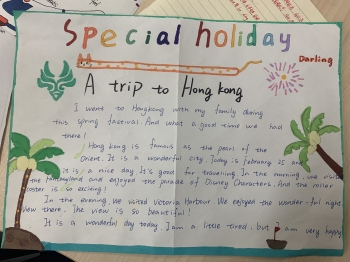 Special holiday
Darling
A trip to Hong kong
I went to Hongkong with my family during
this spring festival. And what a good time we had
there!
Hong kong is famous as the pearl of the
Orient. It is a wonderful city. Today is february 25 and
it is a nice day. It's good for travelling. In the morning, we visit
the and enjoyed the parade of Disney Characters. And the roller
coster is so exciting!
In the evening, we visited Victoria Harbour. We enjoyed the wonder-ful night
view there. The view is so beautiful!
It is a wonderful day today. I am a little tired, but I am very happy